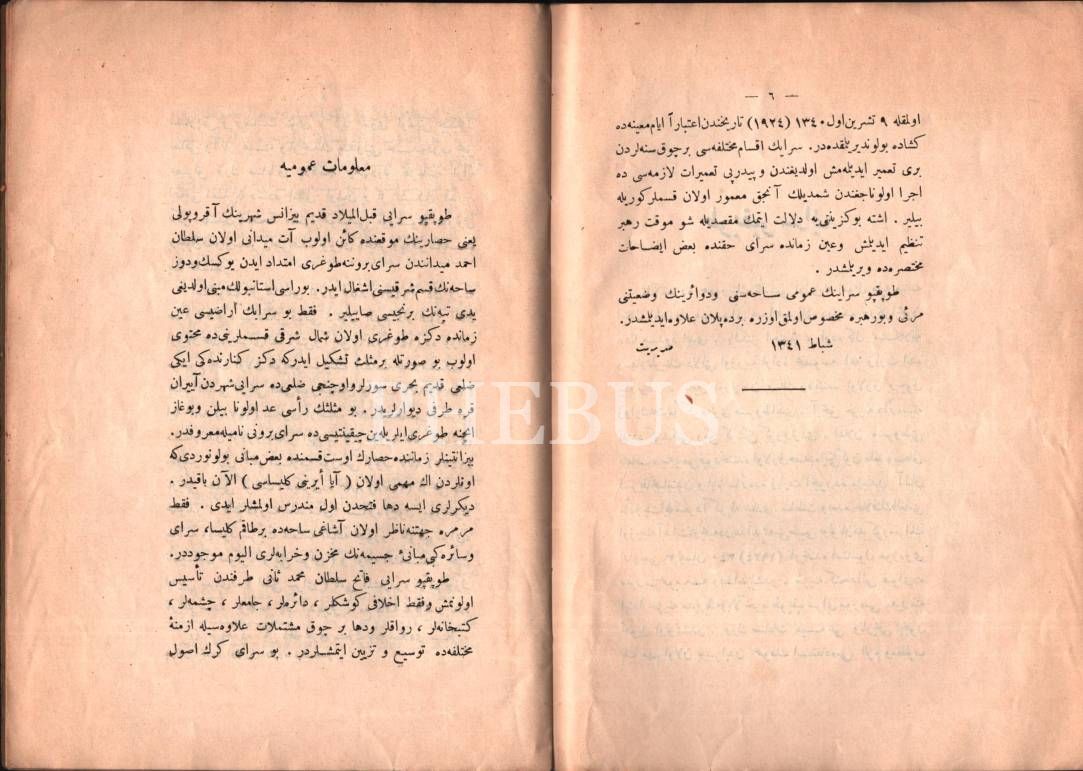 — ٦ —
اولمقله ٩ تشرین‌اول ١٣٤٠ (١٩٢٤) تاریخندن اعتباراً ایام معینه‌ده
كشاده بولوندیرلمقده‌در. سرایك اقسام مختلفه‌سی برچوق سنه‌لردن
بری تعمیر ایدیله‌مش اولدیغندن و پیدرپی تعمیرات لازمه‌سی ده
اجرا اولوناجغندن شمدیلك آنجق معمور اولان قسملر كوریله
بیلیر . اشته بوكزینتی‌یه دلالت ایتمك مقصدیله شو موقت رهبر
تنظیم ایدیلمش وعین زمانده سرای حقنده بعض ایضاحات
مختصره‌ده ویرلمشدر .
طوپقپو سراینك عمومی ساحه‌سنی ودوائرینك وضعیتنی
مرئی وبورهبره مخصوص اولمق اوزره برده‌پلان علاوه‌ایدیلمشدر.
شباط ١٣٤١ مدیریت
معلومات عمومیه
طوپقپو سرایی قبل‌المیلاد قدیم بیزانس شهرینك آقروپولی
یعنی حصارینك موقعنده كائن اولوب آت میدانی اولان سلطان
احمد میدانندن سرای بروننه‌طوغری امتداد ایدن یوكسك‌ودوز
ساحه‌نك‌قسم شرقیسنی‌اشغال ایدر. بوراسی‌استانبولك مبنی‌اولدیغی
یدی تپه‌نك برنجیسی صاییلیر . فقط بو سرایك أراضیسی عین
زمانده دكزه طوغری اولان شمال شرقی قسملرینی‌ده محتوی
اولوب بو صورتله برمثلث تشكیل ایدركه دكز كنارنده‌كی ایكی
ضلعی قدیم بحری سورلرواوچنجی ضلعی‌ده سرایی‌شهردن آییران
قره طرفی دیوارلریدر. بو مثلثك رأسی عد اولونا بیلن وبوغاز
ایچنه طوغری‌ایلریله‌ین‌چیقینتیسی‌ده سرای‌برونی نامیله‌معروفدر.
بیزانتینلر زماننده حصارك اوست‌قسمنده بعض‌مبانی بولونوردی‌كه
اونلردن اك مهمی اولان ( آیا أیرینی كلیساسی ) الآن باقیدر .
دیكرلری ایسه دها فتحدن اول مندرس اولمشلر ایدی . فقط
مرمره جهتنه‌ناظر اولان آشاغی ساحه‌ده برطاقم كلیسا، سرای
وسائره‌كبی‌مبانیٔ جسیمه‌نك مخزن وخرابه‌لری الیوم موجوددر.
طوپقپو سرایی فاتح سلطان محمد ثانی طرفندن تأسیس
اولونمش وفقط اخلافی كوشكلر ، دائره‌لر ، جامعلر ، چشمه‌لر ،
كتبخانه‌لر ، رواقلر ودها بر چوق مشتملات علاوه‌سیله ازمنهٔ
مختلفه‌ده توسیع و تزیین ایتمشلردر . بو سرای كرك اصول
PHEBUS